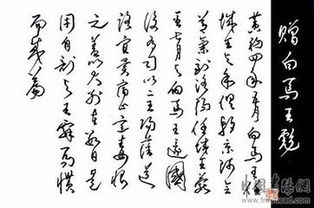 贈白馬王彪
黄初四年五月白馬王任
城王與余俱朝京師會
節氣到洛陽任城王薨
至七月與白馬王還國
後有司以二王歸藩道
路宜異宿止意毒恨
之蓋以大别在數日是
用自剖與王辭焉憤
而成篇